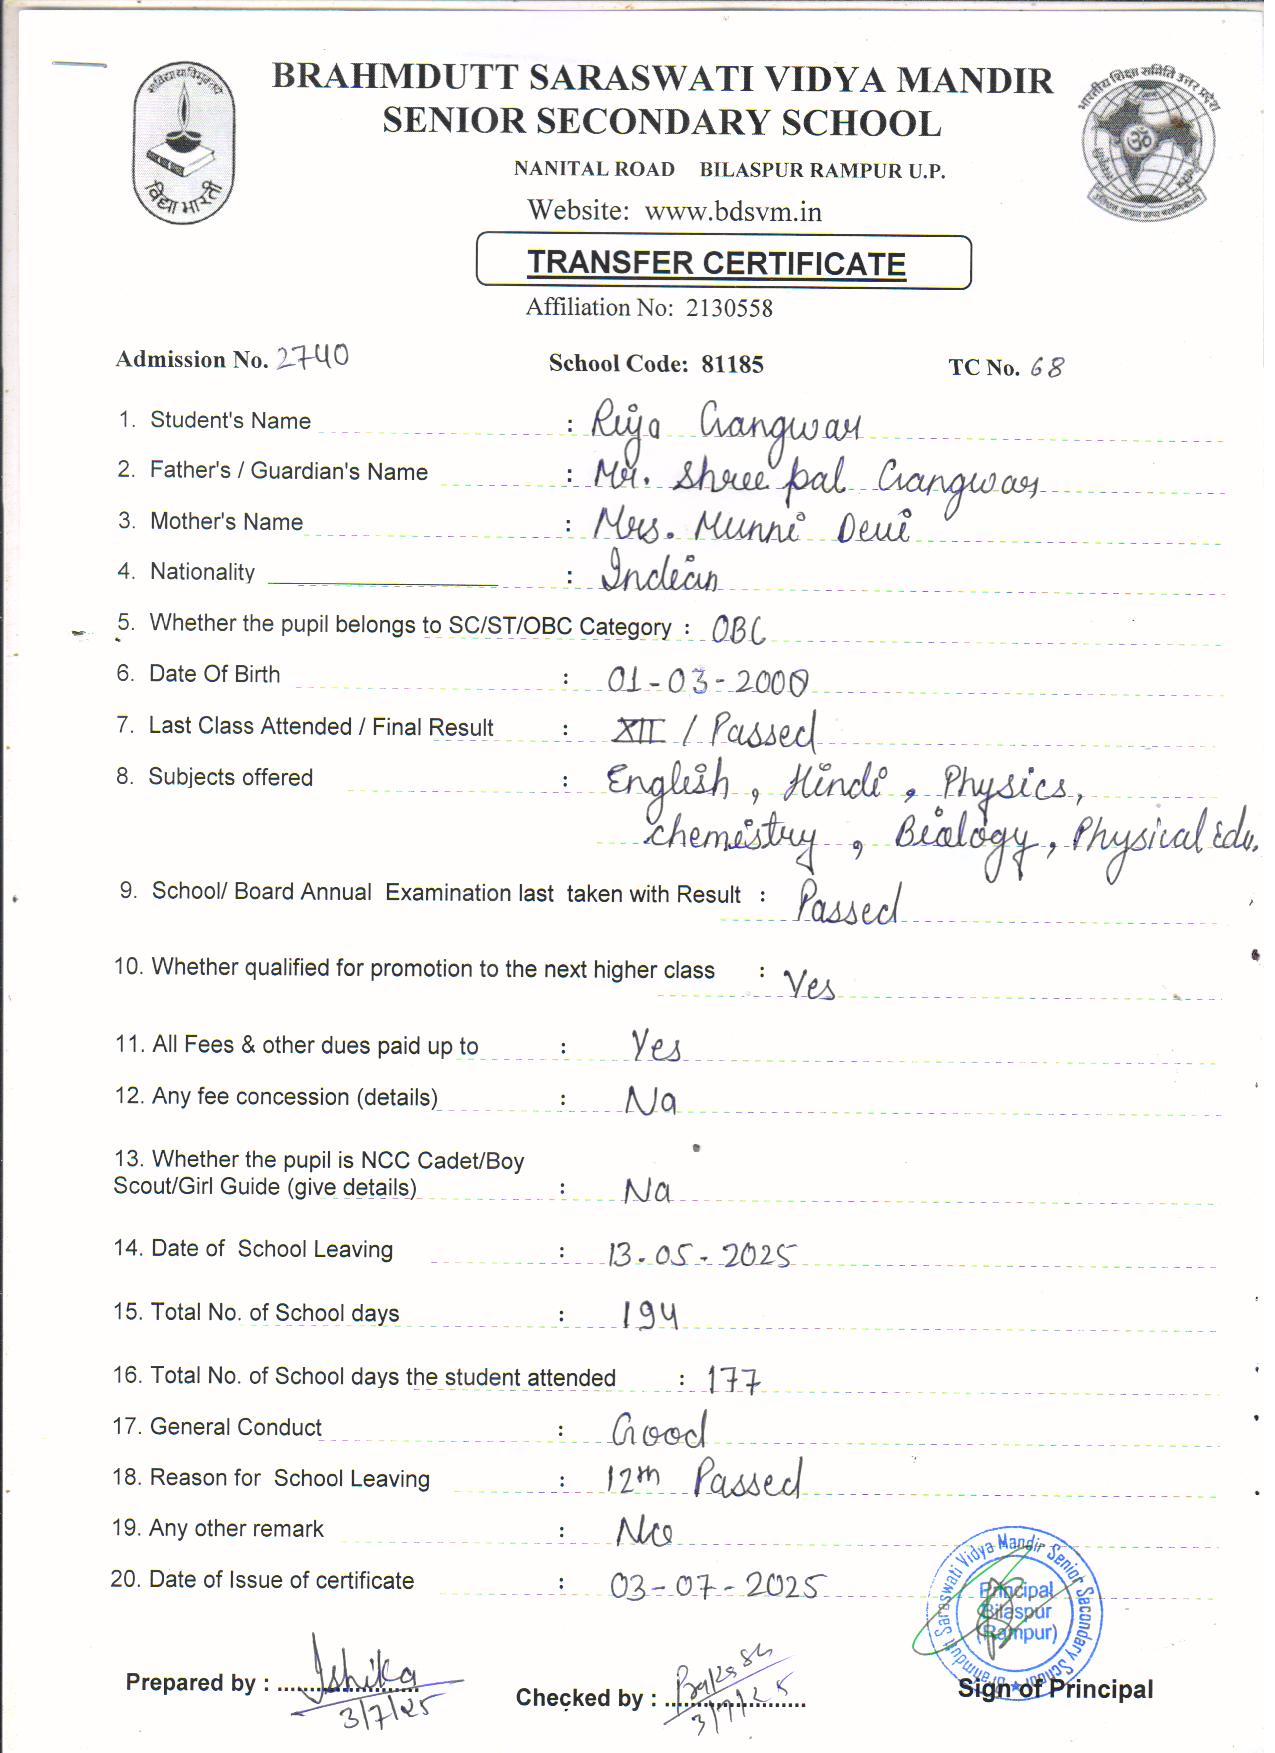 BRAHMDUTT SARASWATI VIDYA MANDIR
SENIOR SECONDARY SCHOOL
NANITAL ROAD BILASPUR RAMPUR U.P.
Website: www.bdsvm.in
विद्या भारती
भारतीय शिक्षा समिति उत्तर प्रदेश
ॐ
TRANSFER CERTIFICATE
Affiliation No: 2130558
Admission No. 2740 School Code: 81185 TC No. 68
1. Student's Name : Riya Gangwar
2. Father's / Guardian's Name : Mr. Shree pal Gangwar
3. Mother's Name : Mrs. Munni Devi
4. Nationality : Indian
5. Whether the pupil belongs to SC/ST/OBC Category : OBC
6. Date Of Birth : 01-03-2000
7. Last Class Attended / Final Result : XII / Passed
8. Subjects offered : English, Hindi, Physics,
chemistry, Biology, Physical Edu.
9. School/ Board Annual Examination last taken with Result : Passed
10. Whether qualified for promotion to the next higher class : Yes
11. All Fees & other dues paid up to : Yes
12. Any fee concession (details) : Na
13. Whether the pupil is NCC Cadet/Boy
Scout/Girl Guide (give details) : Na
14. Date of School Leaving : 13-05-2025
15. Total No. of School days : 194
16. Total No. of School days the student attended : 177
17. General Conduct : Good
18. Reason for School Leaving : 12th Passed
19. Any other remark : No
20. Date of Issue of certificate : 03-07-2025
Brahmdutt Saraswati Vidya Mandir Senior Secondary School
Principal
Bilaspur
(Rampur)
Prepared by : Ishika
3/7/25
Checked by :
3/7/25
Sign of Principal